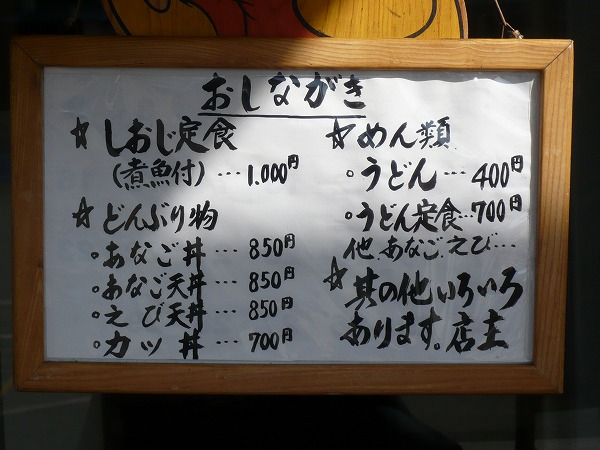 おしながき
☆しおじ定食
(煮魚付)…1.000円
☆どんぶり物
。あなご丼…850円
。あなご天丼…850円
。えび天丼…850円
。カツ丼…700円
☆めん類
。うどん…400円
。うどん定食…700円
他.あなご.えび…
☆其の他いろいろ
あります。店主